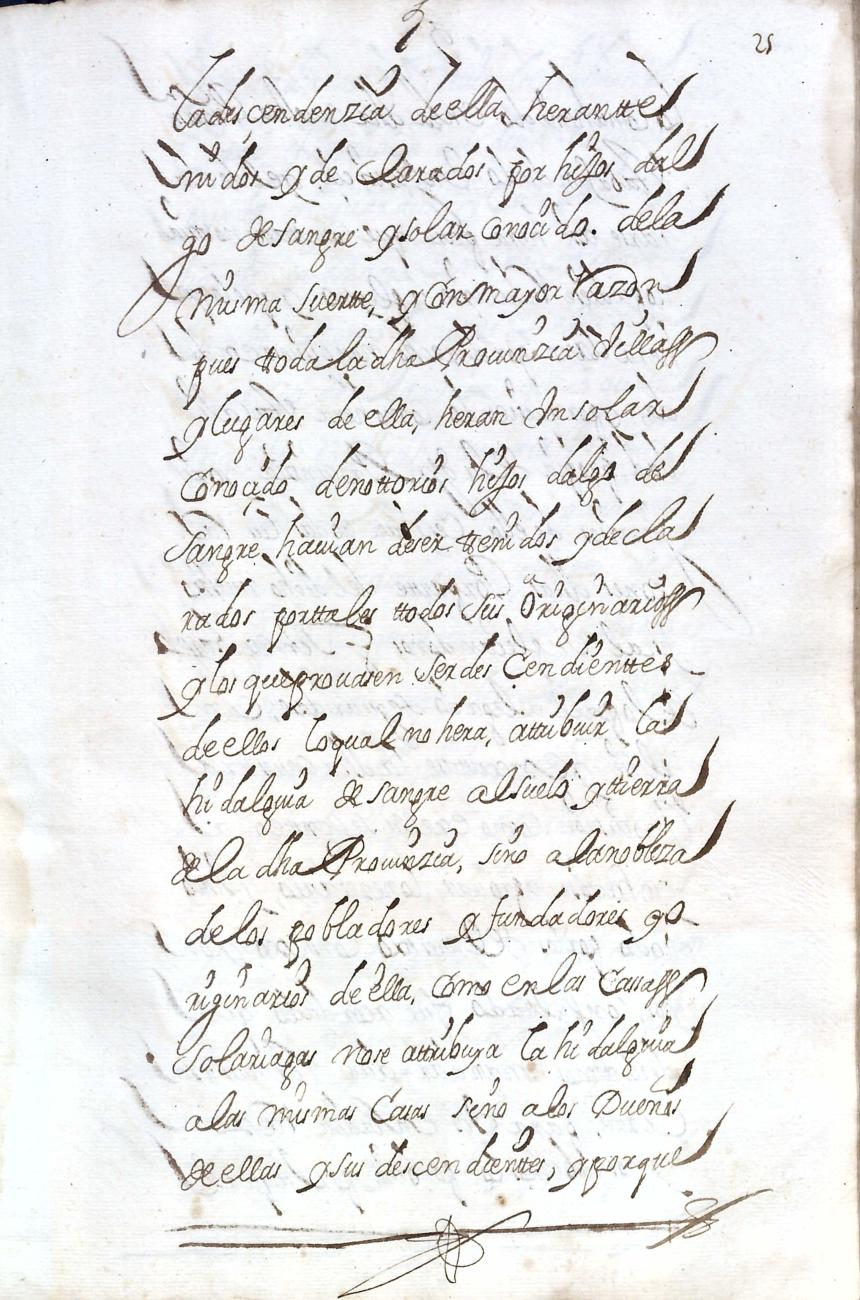 25
la des,cendenzia de ella, herantte
nidos y de Clarados por hijos dal
go de sangre y solar Conocido. dela
misma suertte, y Con mayor Razon
pues ttoda la dha Provinzia Villas
y lugares de ella, heran Un solar
Conocido de nottorios hijos dalgo de
sangre havian deser ttenidos y decla
rados porttales ttodos sus Originarios
y los que provasen ser des Cendienttes
de ellos lo qual no hera, attribuir la
hidalguia de sangre al suelo y ttierra
de la dha Provinzia, sino a la nobleza
de los pobladores y fundadores y o
riginarios de ella, Como en las Casas
solariegas nose attribuya la hidalguia
a las mismas Casas sino a los Dueños
de ellas y sus descendienttes, y porque